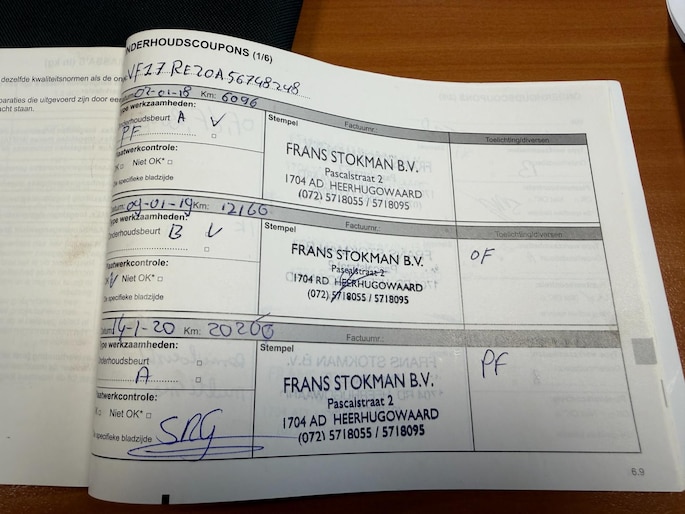 dezelfde kwaliteitsnormen als de
paraties die uitgevoerd zijn door
acht staan.
NDERHOUDSCOUPONS (1/6)
VF17RE20A56748248
02-01-18 Km: 6096
ype werkzaamheden:
nderhoudsbeurt A V
PF
laatwerkcontrole:
Niet OK*
specifieke bladzijde
Stempel Factuurnr.:
FRANS STOKMAN B.V.
Pascalstraat 2
1704 AD HEERHUGOWAARD
(072) 5718055 / 5718095
Toelichting/diversen
Datum: 09-01-19 Km: 12166
ype werkzaamheden:
Onderhoudsbeurt B V
laatwerkcontrole:
Niet OK*
specifieke bladzijde
Stempel Factuurnr.:
FRANS STOKMAN B.V.
Pascalstraat 2
1704 RD HEERHUGOWAARD
(072) 5718055 / 5718095
Toelichting/diversen
OF
Datum: 14-1-20 Km: 20200
ype werkzaamheden:
Onderhoudsbeurt
A
laatwerkcontrole:
Niet OK*
specifieke bladzijde SRG
Stempel Factuurnr.:
FRANS STOKMAN B.V.
Pascalstraat 2
1704 AD HEERHUGOWAARD
(072) 5718055 / 5718095
Toelichting/diversen
PF
6.9